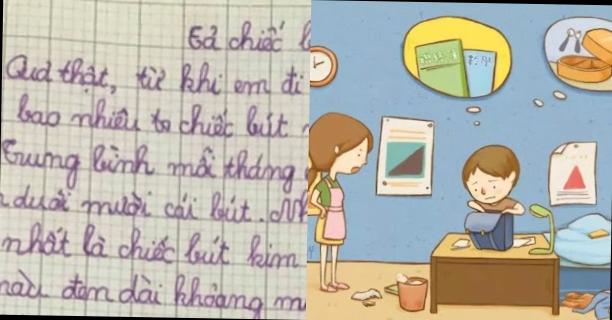 Tả chiếc
Quả thật, từ khi em đi
bao nhiêu to chiếc bút
Trung bình mỗi tháng
duới mười cái bút.
nhất là chiếc bút kim
đen dài khoảng